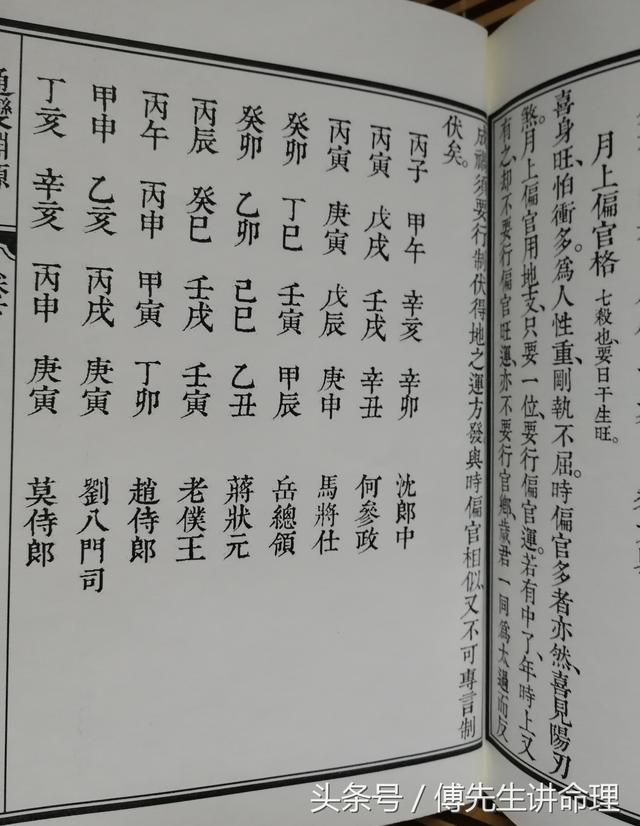 月上偏官格 七殺也、要日干生旺。
喜身旺、怕衝多。為人性重、剛執不屈。時偏官多者亦然、喜見陽刃
煞。月上偏官用地支、只要一位、要行偏官運。若有中了、年時上又
有之、却不要行偏官旺運、亦不要行官鄉、歲君一同為太過而反
成禍、須要行制伏得地之運方發、與時偏官相似、又不可專言制
伏矣。
丙子 甲午 辛亥 辛卯 沈郎中
丙寅 戊戌 壬戌 辛丑 何參政
丙寅 庚寅 戊辰 庚申 馬將仕
癸卯 丁巳 壬寅 甲辰 岳總領
癸卯 乙卯 己巳 乙丑 蔣狀元
丙辰 癸巳 壬戌 壬寅 老僕王
丙午 丙申 甲寅 丁卯 趙侍郎
甲申 乙亥 丙戌 庚寅 劉八門司
丁亥 辛亥 丙申 庚寅 莫侍郎
頭条号 / 傅先生讲命理